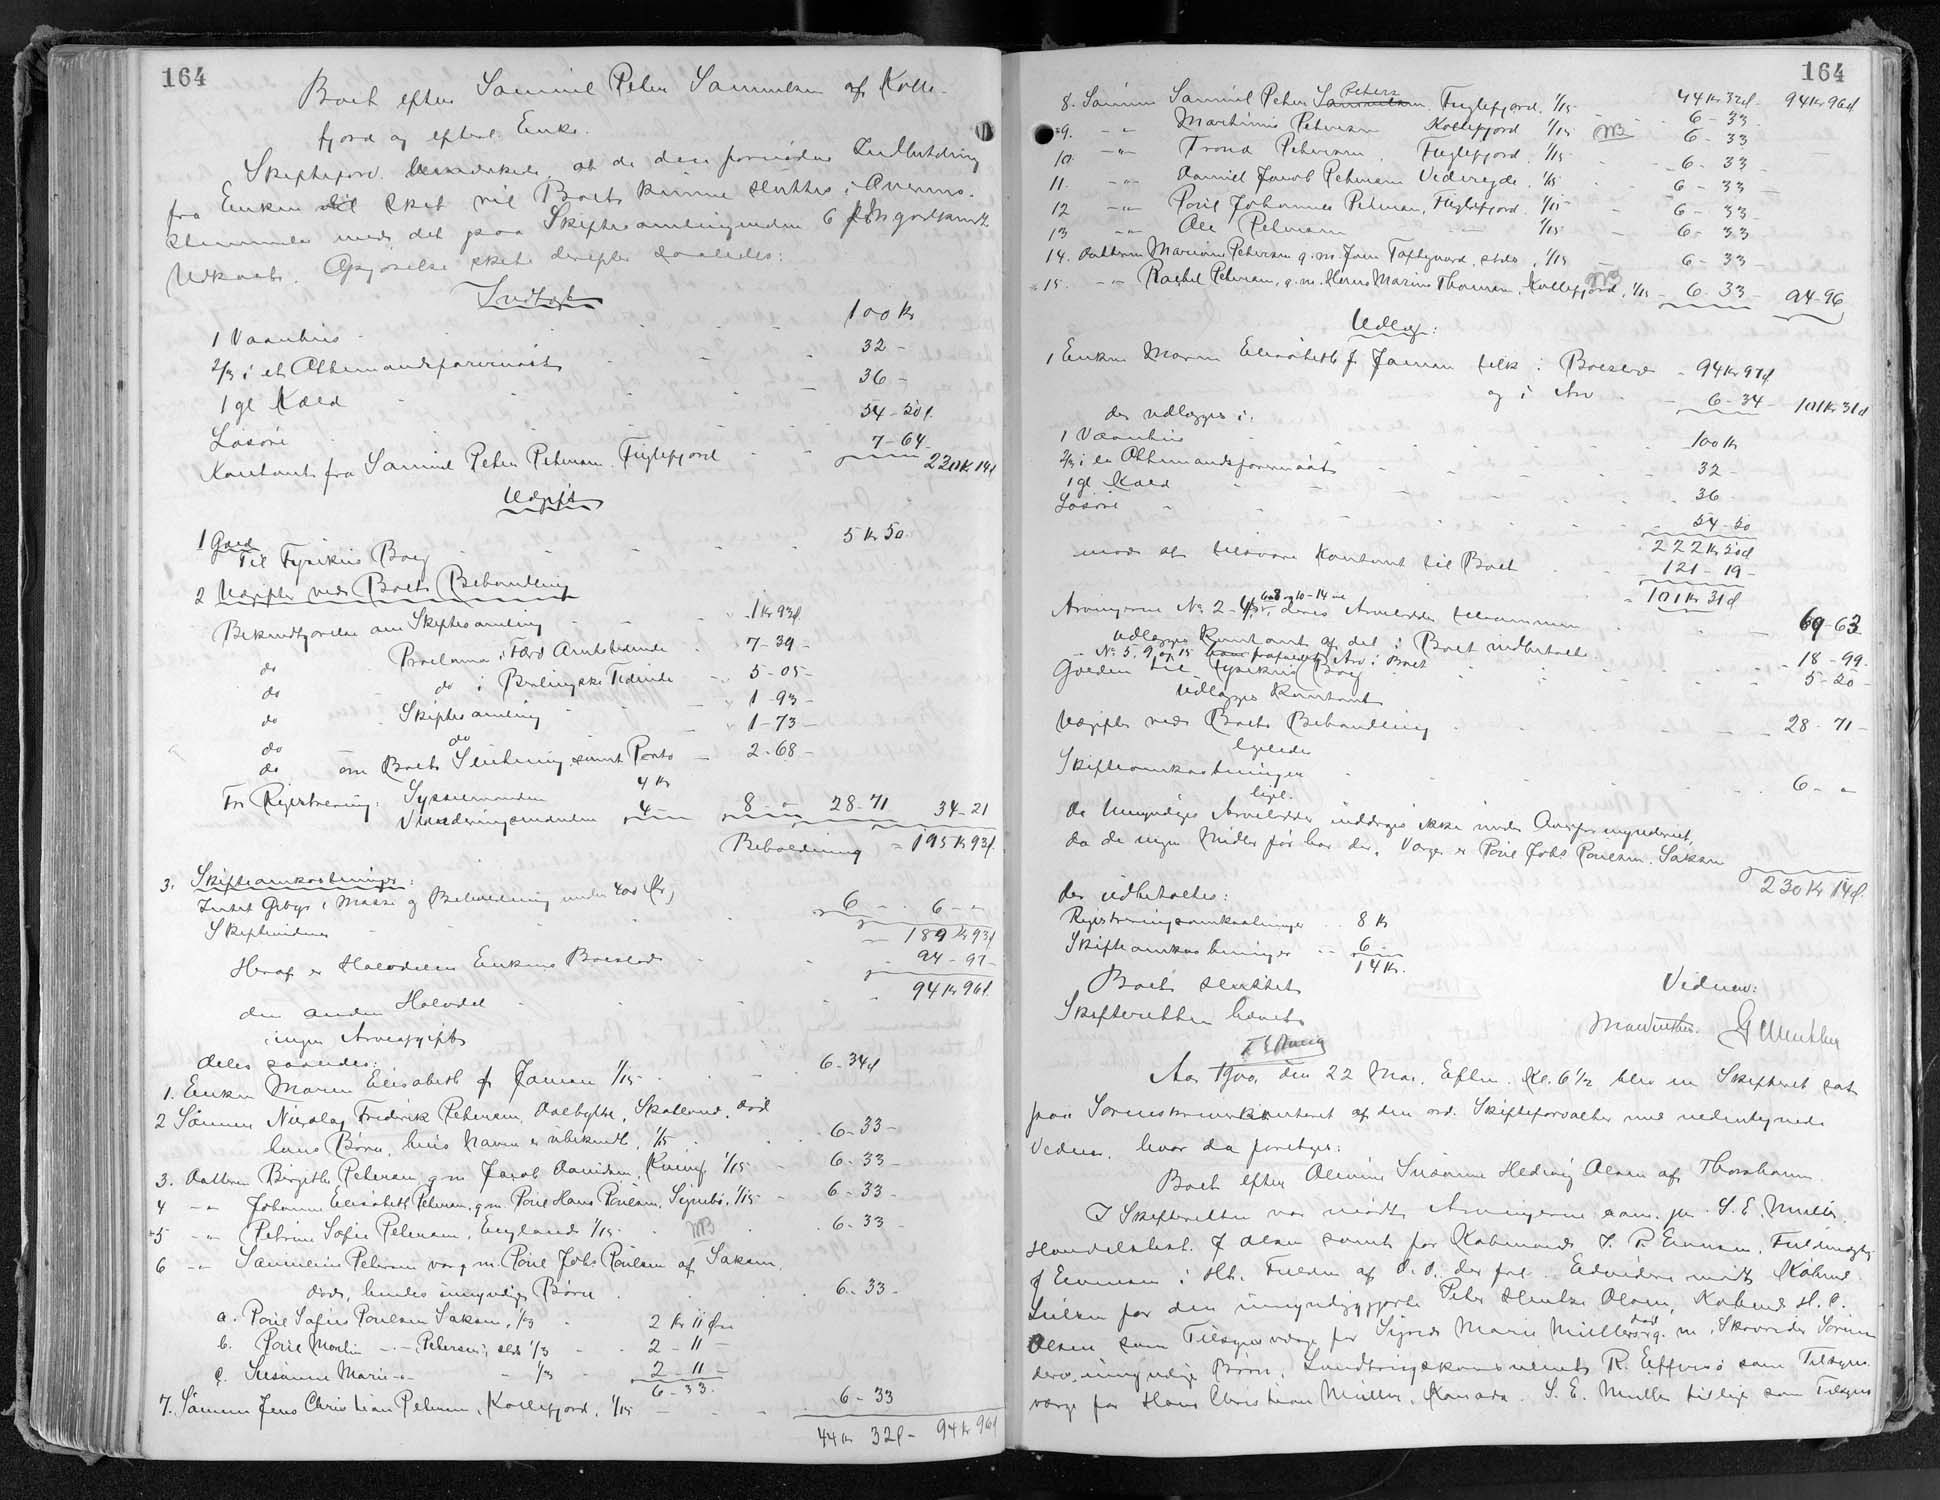 164
Boet efter Samuel Peter Samuelsen af Kolle-
fjord og efterl. Enke.
Skifteforv. bemærkede, at da den fornødne Indbetaling
fra Enken er sket vil Boet kunne sluttes i Overens-
stemmelse med det paa Skiftesamlingen den 6 godkendt
Udkast. Opgørelse skete derefter saaledes:
Indtægt
1 Vaanhus - 100 Kr
2/3 i et Ottemandsfarvmast - 32 -
1 gl Kæld - 36 -
Løsøre 54 - 50 -
Kontant fra Samuel Peter Petersen Fuglefjord 7 - 64 - 230 Kr 14 Ø
Udgift
1 Gæld
Til Fysikus Boeg 5 Kr 50
2 Udgifter ved Boets Behandling
Bekendtgørelse om Skiftesamling 1 Kr 93 Ø
do Proclama i Færø Amtstidende 7 - 39 -
do do i Berlingske Tidende 5 - 05 -
do Skiftesamling 1 - 93 -
do do 1 - 73 -
do om Boets Slutning samt Porto 2 - 68 -
For Registrering: Sysselmanden 4 Kr
Vurderingsmændene 4 - 8 - " 28 - 71 34 - 21
Beholdning = 195 Kr 93 Ø
3. Skifteomkostninger:
Intet Gebyr i Masse og Beholdning under 400 Kr,
Skiftevidner 6 - 6 - "
189 Kr 93 Ø
Heraf er Halvdelen Enkens Boeslod 94 - 97 -
den anden Halvdel 94 Kr 96 Ø
ingen Arveafgift
deles saaledes:
1. Enken Maren Elisabeth f. Jansen 1/15 6 - 34 Ø
2 Sønnen Nicolaj Frederik Petersen, Dalbythe, Skotland, død
hans Børn, hvis Navn er ubekendt, 1/15 6 - 33 -
3. Datteren Birgithe Petersen g. m. Jacob Danielsen, Kvivig 1/15 6 - 33 -
4 - " Johanne Elisabeth Petersen, g. m. Poul Hans Poulsen, Syrebø, 1/15 - 6 - 33 -
5 - " Petrine Sofie Petersen, England 1/15 NB 6 - 33 -
6 - " Sanneine Petersen var g. m. Poul Johs Poulsen af Saksen,
død, hendes umyndige Børn 6 - 33 -
a. Poul Sofus Poulsen Saksen, 1/3 2 Kr 11 Øre
b. Poul Martin - " - Petersen, sstds 1/3 2 - 11 -
c. Susanne Marie - " - 1/3 2 - 11 -
6 - 33.
7. Sønnen Jens Christian Petersen, Kollefjord, 1/15 6 - 33
44 Kr 32 Ø - 94 Kr 96 Ø
164
44 Kr 32 Ø - 94 Kr 96 Ø
8. Sønnen Samuel Peter Samuelsen Peters Fuglefjord, 1/15 - 6 - 33 -
9. - " Marthinus Petersen Kollefjord 1/15 NB 6 - 33
10. - " Trond Petersen, Fuglefjord, 1/15 6 - 33 -
11. - " Daniel Jacob Petersen Viderejde, 1/15 6 - 33 -
12 - " Poul Johannes Petersen, Fuglefjord, 1/15 6 - 33 -
13 - " Ole Petersen 1/15 6 - 33
14. Datteren Marianne Petersen g. m. Joen Toftegaard, stds, 1/15 6 - 33 -
15. - " Rachel Petersen, g. m. Hans Marius Thomsen, Kollefjord, NB 1/15 - 6 - 33 - 94 - 96
Udlæg:
1 Enken Maren Elisabeth f. Jansen tilk. i Boeslod - 94 Kr 97 Ø
og i Arv 6 - 34 - 101 Kr 31 Ø
der udlægges i:
1 Vaanhus 100 Kr
2/3 i et Ottemandsfarvmast 32 -
1 gl Kæld 36
Løsøre 54 - 50
222 Kr 50 Ø
mod at tilsvare Kontant til Boet 121 - 19 -
101 Kr 31 Ø
Arvingerne No 2 - 4, 6 - 8 og 10 - 14 inc. deres Arvelodder tilsammen 69 - 63
Udlægges Kontant af det i Boet indbetalte
- No 5, 9 og 15 Arv i Boet 18 - 99 -
Gælden til Fysikus Boeg 5 - 50 -
Udlægges Kontant
Udgifter ved Boets Behandling 28 - 71 -
ligeledes
Skifteomkostninger 6 - "
ligel.
De Umyndiges Arvelodder inddrages ikke under Overformynderiet,
da de ingen Midler før har der, Værge er Poul Johs Poulsen, Saksen
230 Kr 14 Ø
der udbetaltes:
Registreringsomkostninger 8 Kr
Skifteomkostninger 6 -
14 Kr.
Boet sluttet
Skifteretten hævet
Vidner:
Aar 1900, den 22 Mai, Efterm. Kl. 6 1/2 blev en Skifteret sat
paa Sorenskriverkontoret af den ord. Skifteforvalter med nedentegnede
Vidner, hvor da foretoges:
Boet efter Olevine Susanne Hedevig Olsen af Thorshavn.
I Skifteretten var mødt Arvingerne som. for S. E. Müller,
Handelsbest. J Olsen samt for Købmand J. P. Evensen, Fuldmægtig
J Evensen i Hh. Fuldm af d. d. der frl. Endvidere mødte Købmd.
Lützen for den umyndiggjorte Peter Hentze Olsen, Købmd H. C.
Olsen som Tilsynsværge for Sigrid Marie Müllers død g. m. Skovrider Sørensen
deres umyndige Børn, Landbrugskonsulent R. Effersø som Tilsyns-
værge for Hans Christian Müller, Kanada. S. E. Müller tillige som Tilsyns